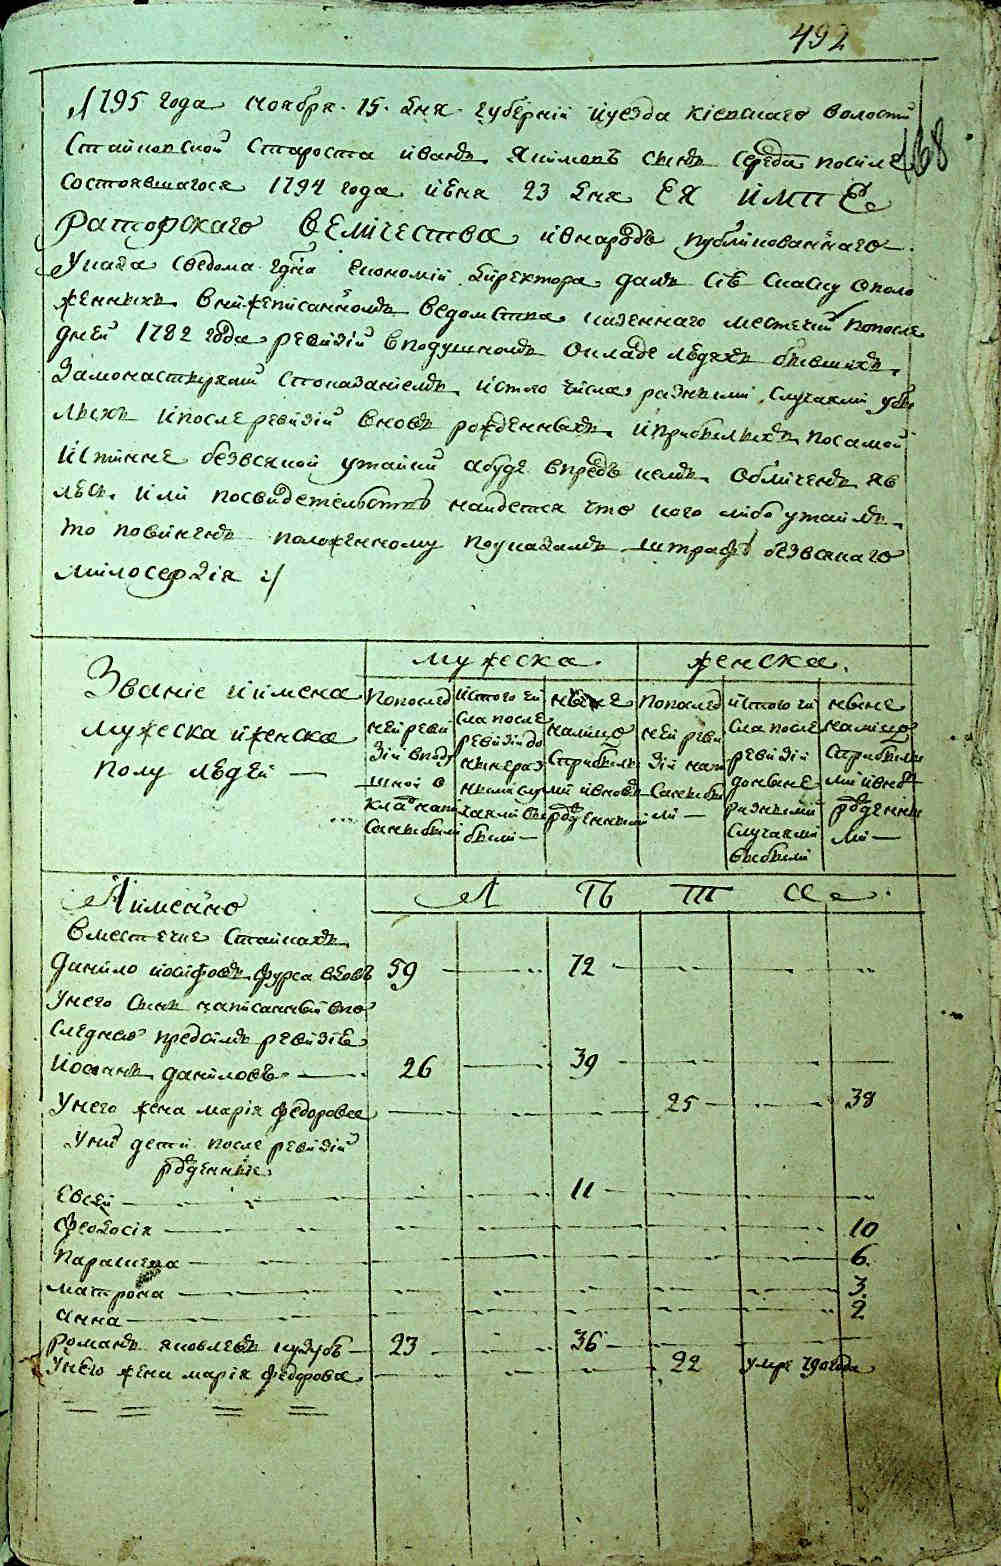 492
168
1795 года ноября 15 дня губернии и уезда киевскаго волости
Стайковской Староста иванъ Якимовъ сынъ середа посиле
состоявшагося 1794 года июня 23 дня ЕЯ ИМПЕ
РАТОРСКАГО ВЕЛИЧЕСТВА и внародъ публикованнаго
Указа сведома гдна економии директора далъ сию скаску ополо
женныхъ внижеписанномъ ведомства казеннаго местечки попосле
дней 1782 года ревизии вподушномъ окладе людяхъ бывшихъ
Замонастыремъ споказаниемъ истого числа разными случаями убы
лыхъ ипосле ревизии вновь рожденныхъ и прибылыхъ посамой
истинне безвсякой утайки абуде впредь кемъ обличенъ яв
люсь или посвидетельству найдется что кого либо утаилъ
то повиненъ положенному поуказамъ штрафу безвсякаго
милосердия
Звание иимена
мужеска иженска
полу людей
мужеска
женска
Попослед
ней реви
зии вподу
шной о
кладъ напи
саны были
истого чи
сла после
ревизии до
ныне раз
ными слу
чаями вы
были
ныне
налицо
сприбылы
ми ивновь
рожденными
Попослед
ней реви
зии напи
саны бы
ли
истого чи
сла после
ревизии
доныне
разными
случаями
выбыли
ныне
налицо
сприбылы
ми ивновь
рожденны
ми
Лѣта
Аименно
Вместечке Стайкахъ
Данило иосифовъ фурса вдовъ 59 72
Унего сынъ написанный впо
следнюю предсимъ ревизию
Иоанъ даниловъ 26 39
Унего жена мария федорова 25 38
Уних дети после ревизии
рожденные
Евсей 11
Феодосия 10
Параскева 6
матрона 3
анна 2
романъ яковлевъ кузубъ 23 36
Унего жена мария федорова 22 умре 790года